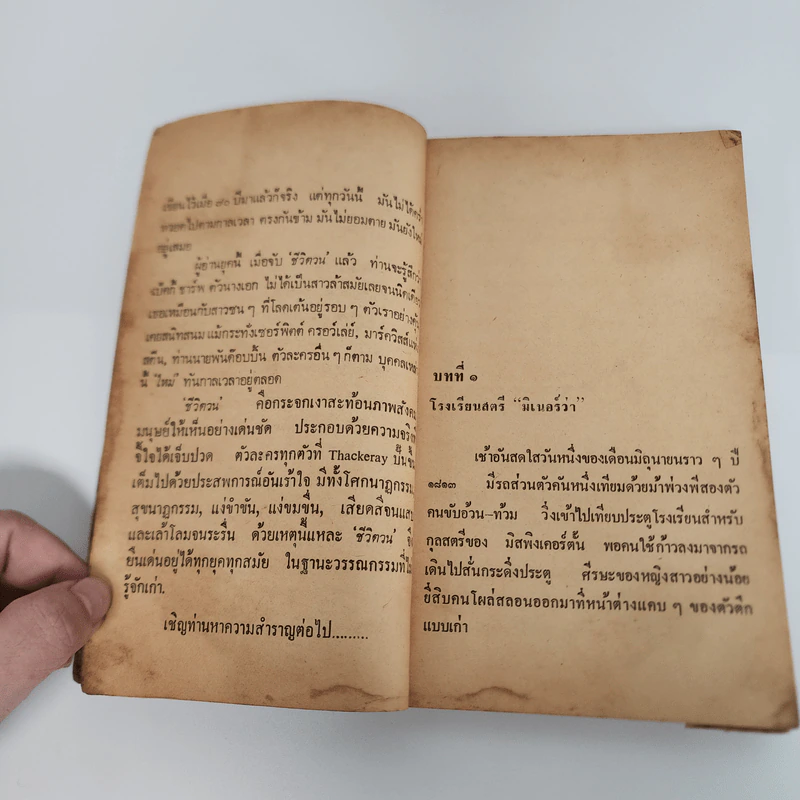 เขียนไว้เมื่อ ๙๐ ปีมาแล้วก็จริง แต่ทุกวันนี้ มันไม่ได้
ไปตามกาลเวลา ตรงกันข้าม มันไม่ยอมตาย มันยัง
อยู่เสมอ
ผู้อ่านยุคนี้ เมื่อจับ ‘ชีวิตวน’ แล้ว ท่านจะรู้สึก
เบ๊คกี้ ชาร์พ ตัวนางเอก ไม่ได้เป็นสาวล้าสมัยเลยจนนิดเดียว
เธอเหมือนกับสาวซน ๆ ที่โลดเต้นอยู่รอบ ๆ ตัวเราอย่าง
เคยสนิทสนม แม้กระทั่งเซอร์พิตต์ ครอว์เล่ย์, มาร์ควิสส์
สตีน, ท่านนายพันด๊อบบิ้น ตัวละครอื่น ๆ ก็ตาม บุคคล
นี้ ‘ใหม่’ ทันกาลเวลาอยู่ตลอด
‘ชีวิตวน’ คือกระจกเงาสะท้อนภาพสังคม
มนุษย์ให้เห็นอย่างเด่นชัด ประกอบด้วยความจริง
จี้ใจได้เจ็บปวด ตัวละครทุกตัวที่ Thackeray ปั้นขึ้น
เต็มไปด้วยประสพการณ์อันเร้าใจ มีทั้งโศกนาฏกรรม
สุขนาฏกรรม, แง่ขำขัน, แง่ขมขื่น, เสียดสีจน
และเล้าโลมจนระรื่น ด้วยเหตุนี้แหละ ‘ชีวิตวน’ จึง
ยืนเด่นอยู่ได้ทุกยุคทุกสมัย ในฐานะวรรณกรรมที่ไม่
รู้จักเก่า.
เชิญท่านหาความสำราญต่อไป.........
บทที่ ๑
โรงเรียนสตรี “มิเนอร์ว่า”
เช้าอันสดใสวันหนึ่งของเดือนมิถุนายนราว ๆ ปี
๑๘๑๓ มีรถส่วนตัวคันหนึ่งเทียมด้วยม้าพ่วงพีสองตัว
คนขับอ้วน–ท้วม วิ่งเข้าไปเทียบประตูโรงเรียนสำหรับ
กุลสตรีของ มิสพิงเคอร์ตั้น พอคนใช้ก้าวลงมาจากรถ
เดินไปสั่นกระดิ่งประตู ศีรษะของหญิงสาวอย่างน้อย
ยี่สิบคนโผล่สลอนออกมาที่หน้าต่างแคบ ๆ ของตัวตึก
แบบเก่า